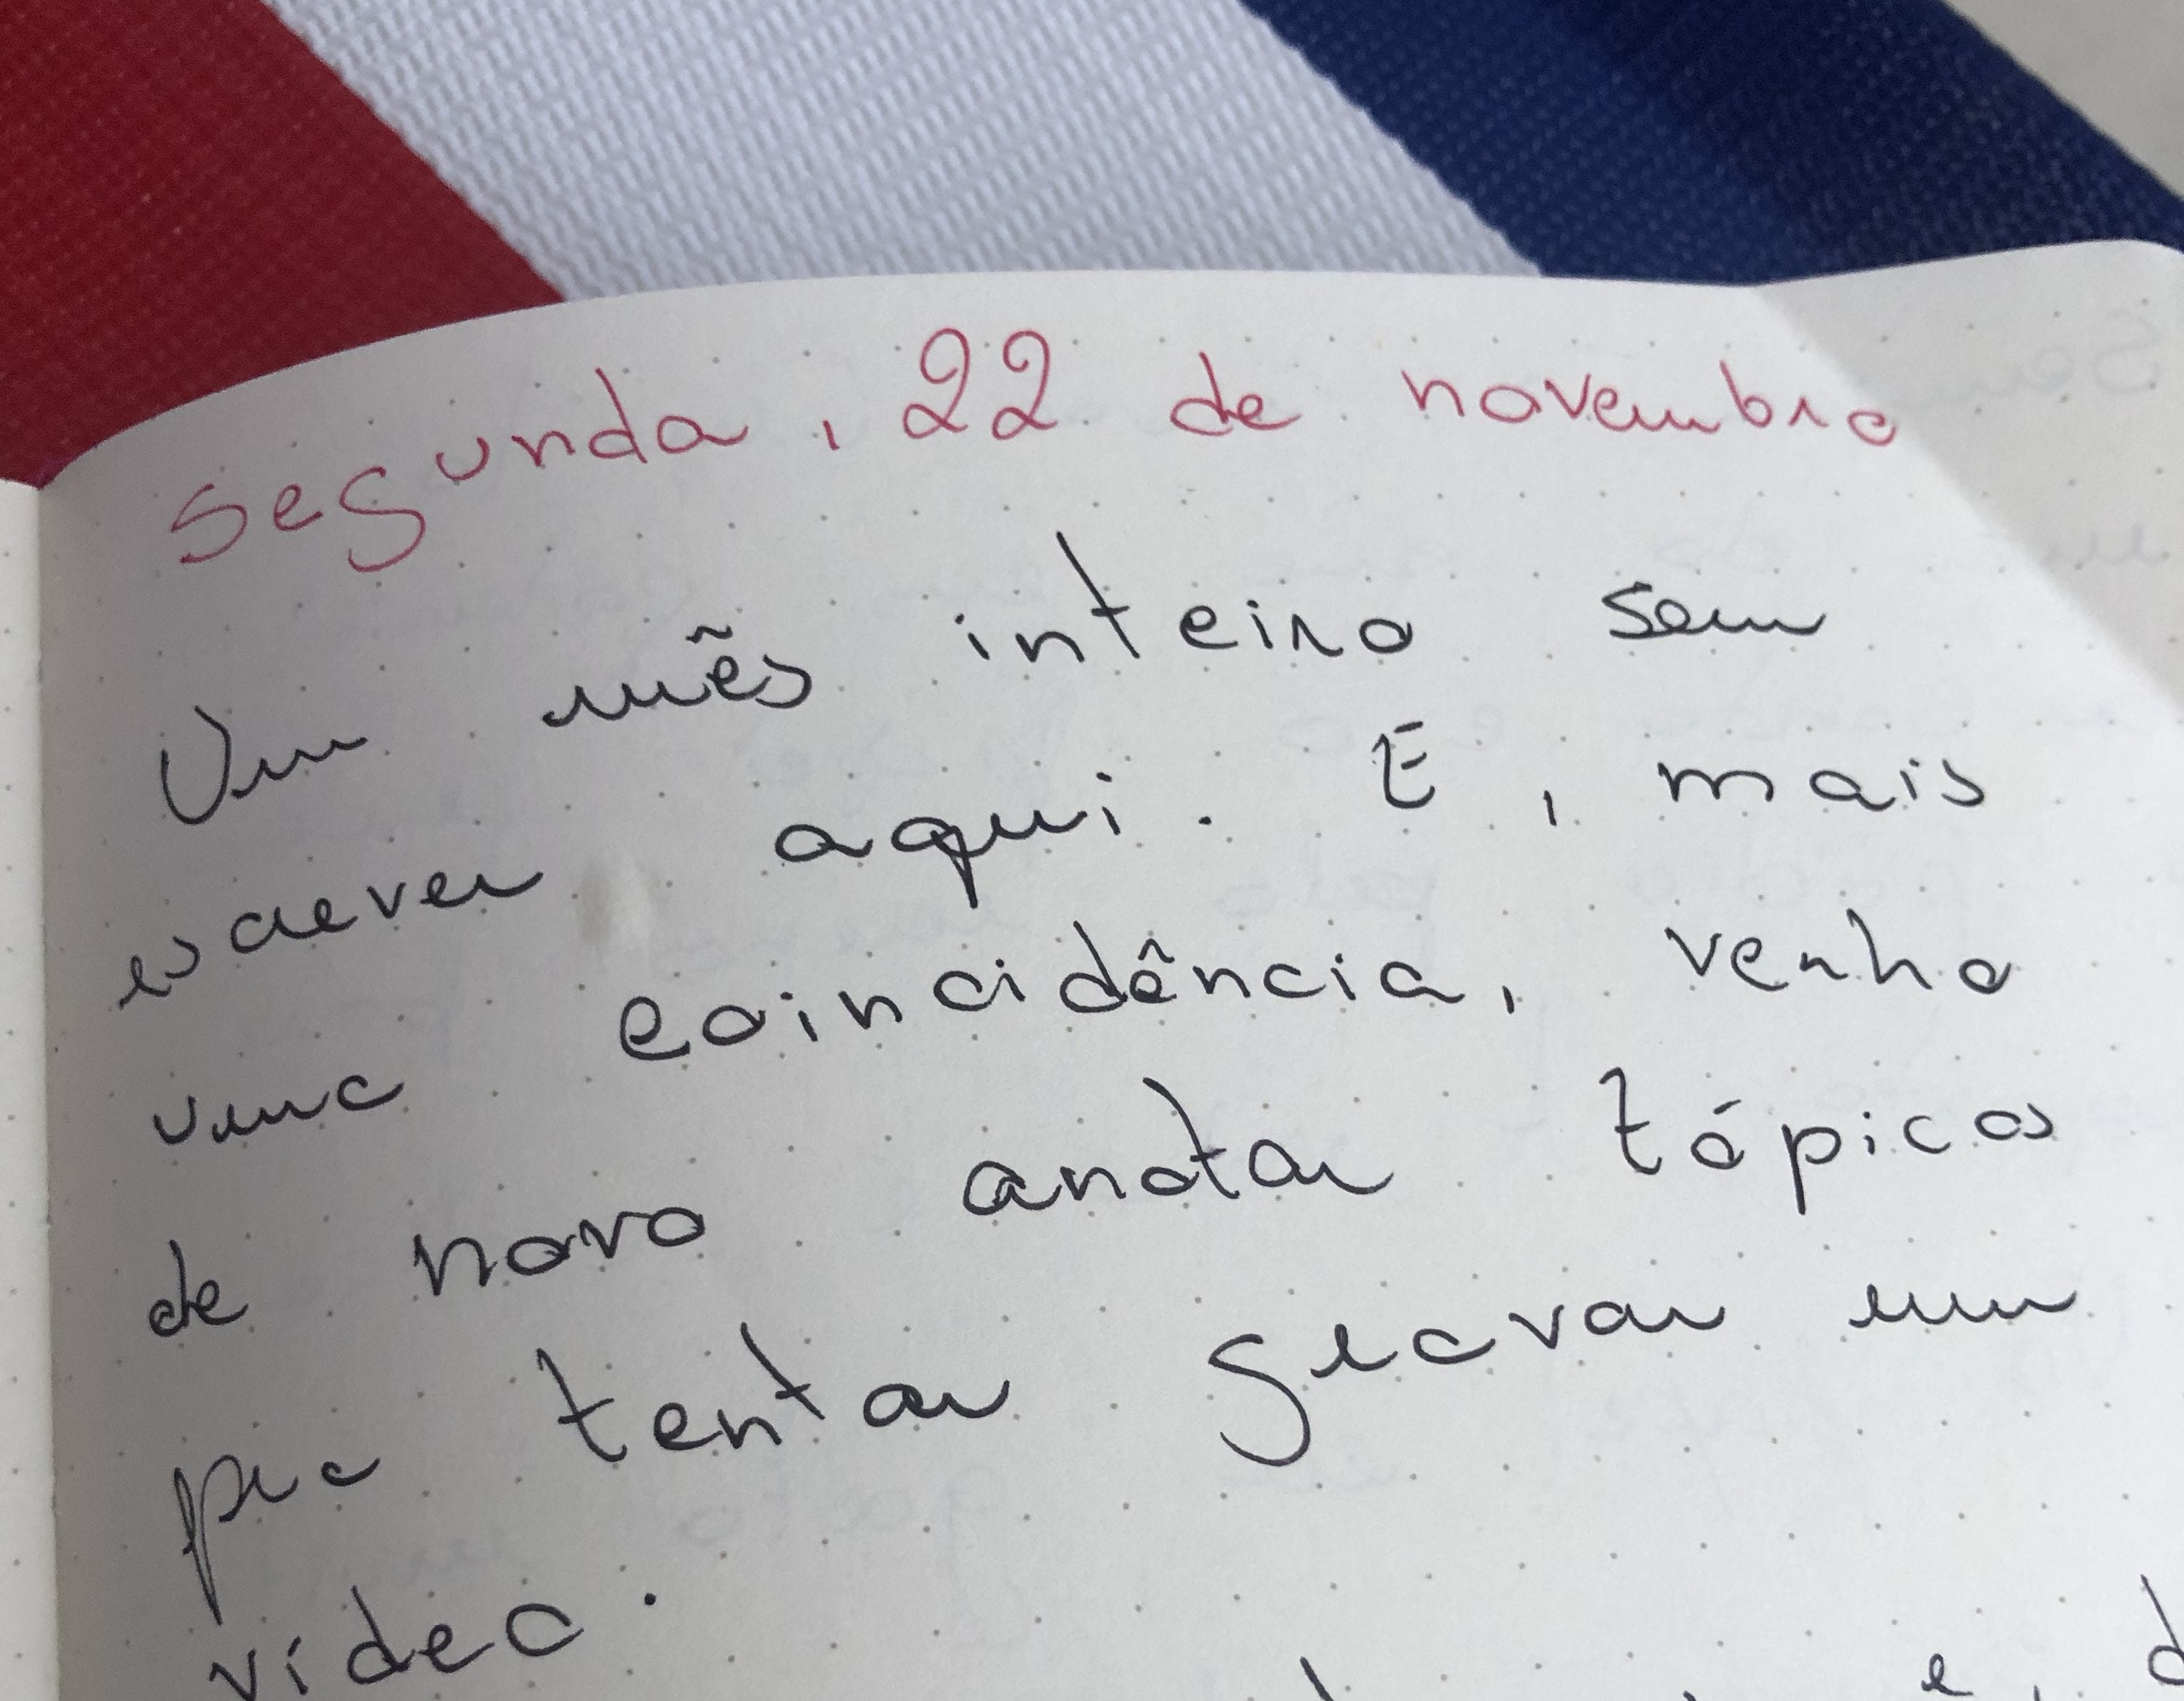 segunda, 22 de novembro
Um mês inteiro sem
escrever aqui. E, mais
uma coincidência, venho
de novo anotar tópicos
pra tentar gravar um
vídeo.